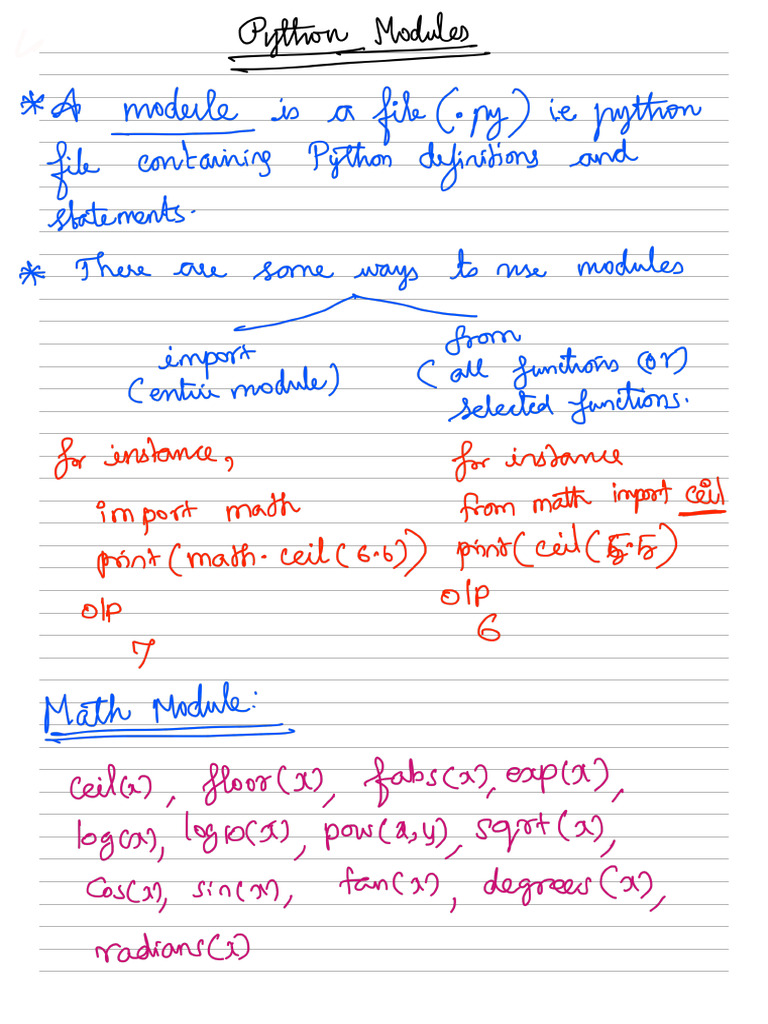 Python Modules
* A module is a file (.py) ie python
file containing Python definitions and
statements.
* There are some ways to use modules
import
(entire module)
from
(all functions (or)
selected functions.
for instance,
import math
print(math.ceil(6.6))
o/p
7
for instance
from math import ceil
print(ceil(5.5)
o/p
6
Math Module:
ceil(x), floor(x), fabs(x), exp(x),
log(x), log10(x), pow(x,y), sqrt(x),
cos(x), sin(x), tan(x), degrees(x),
radians(x)